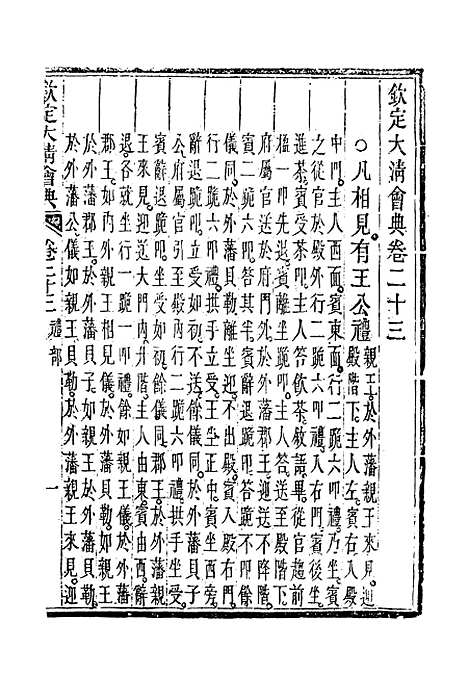 欽定大清會典卷二十三
○凡相見有王公禮
親王於外藩親王來見迎
殿階下主人左賓右入殿
中門主人西面賓東面行二跪六叩禮乃坐賓
之從官於殿外行二跪六叩禮入右門賓後坐
進茶賓受茶叩主人答飲茶敘語畢從官趨前
楹一叩先退賓離坐跪叩主人答送至殿階下
府屬官送於府門外於外藩郡王迎送不降階
賓二跪六叩其半賓離坐跪叩答跪不叩餘
儀同於外藩貝勒離坐迎不出殿賓入殿右門
二跪六叩禮拱手立受王坐正中賓坐西旁
辭退跪叩立受如初不送餘儀同於外藩貝子
公府屬官引至殿行二跪六叩禮拱手坐受
賓辭退跪叩坐受如初餘儀同郡王於外藩親
王來見迎送大門內升階主人由東賓由西辭
退各就坐行一跪一叩禮餘如親王儀於外藩
郡王如內外親王相見儀於外藩貝勒如親王
於外藩郡王於外藩貝子如親王於外藩貝勒
於外藩公儀如親王貝勒於外藩親王來見迎
欽定大清會典 卷二十三 禮部 一